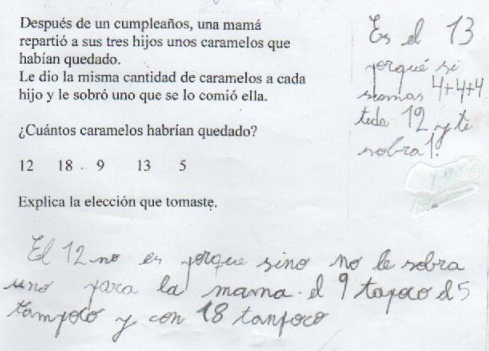 Después de un cumpleaños, una mamá
repartió a sus tres hijos unos caramelos que
habían quedado.
Le dio la misma cantidad de caramelos a cada
hijo y le sobró uno que se lo comió ella.
¿Cuántos caramelos habrían quedado?
12 18 . 9 13 5
Explica la elección que tomaste.
Es el 13
porqué si
sumas 4+4+4
teda 12 y te
sobra 1.
El 12 no es porque sino no le sobra
uno para la mama. el 9 tapoco el 5
tampoco y con 18 tanpoco